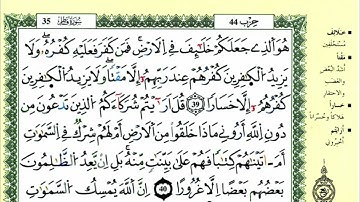 35 سورة فاطر حزب 44
هُوَ اَ۬لذِے جَعَلَكُمْ خَلَٰٓئِفَ فِے اِ۬لَارْضِۖ فَمَن كَفَرَ فَعَلَيْهِ كُفْرُهُۥۖ وَلَا
يَزِيدُ اُ۬لْكٰ۪فِرِينَ كُفْرُهُمْ عِندَ رَبِّهِمُۥٓ إِلَّا مَقْتاٗۖ وَلَا يَزِيدُ اُ۬لْكٰ۪فِرِينَ
كُفْرُهُمُۥٓ إِلَّا خَسَاراٗۖ 39 قُلَ اَرَٰٓيْتُمْ شُرَكَآءَكُمُ اُ۬لذِينَ تَدْعُونَ مِن
دُونِ اِ۬للَّهِ أَرُونِے مَاذَا خَلَقُواْ مِنَ اَ۬لَارْضِ أَمْ لَهُمْ شِرْكٞ فِے اِ۬لسَّمَٰوَٰتِ
أَمَ اٰتَيْنَٰهُمْ كِتَٰباٗ فَهُمْ عَلَىٰ بَيِّنَٰتٖ مِّنْهُۖ بَلِ اِنْ يَّعِدُ اُ۬لظَّٰلِمُونَ
بَعْضُهُم بَعْضاً اِلَّا غُرُوراًۖ 40 إِنَّ اَ۬للَّهَ يُمْسِكُ اُ۬لسَّمَٰوَٰتِ
خلائف
مستخلفين
مقتا
أشد البغض
والغضب
والاحتقار
خسارا
هلاكا وخسرانا
أرايتم
أخبروني